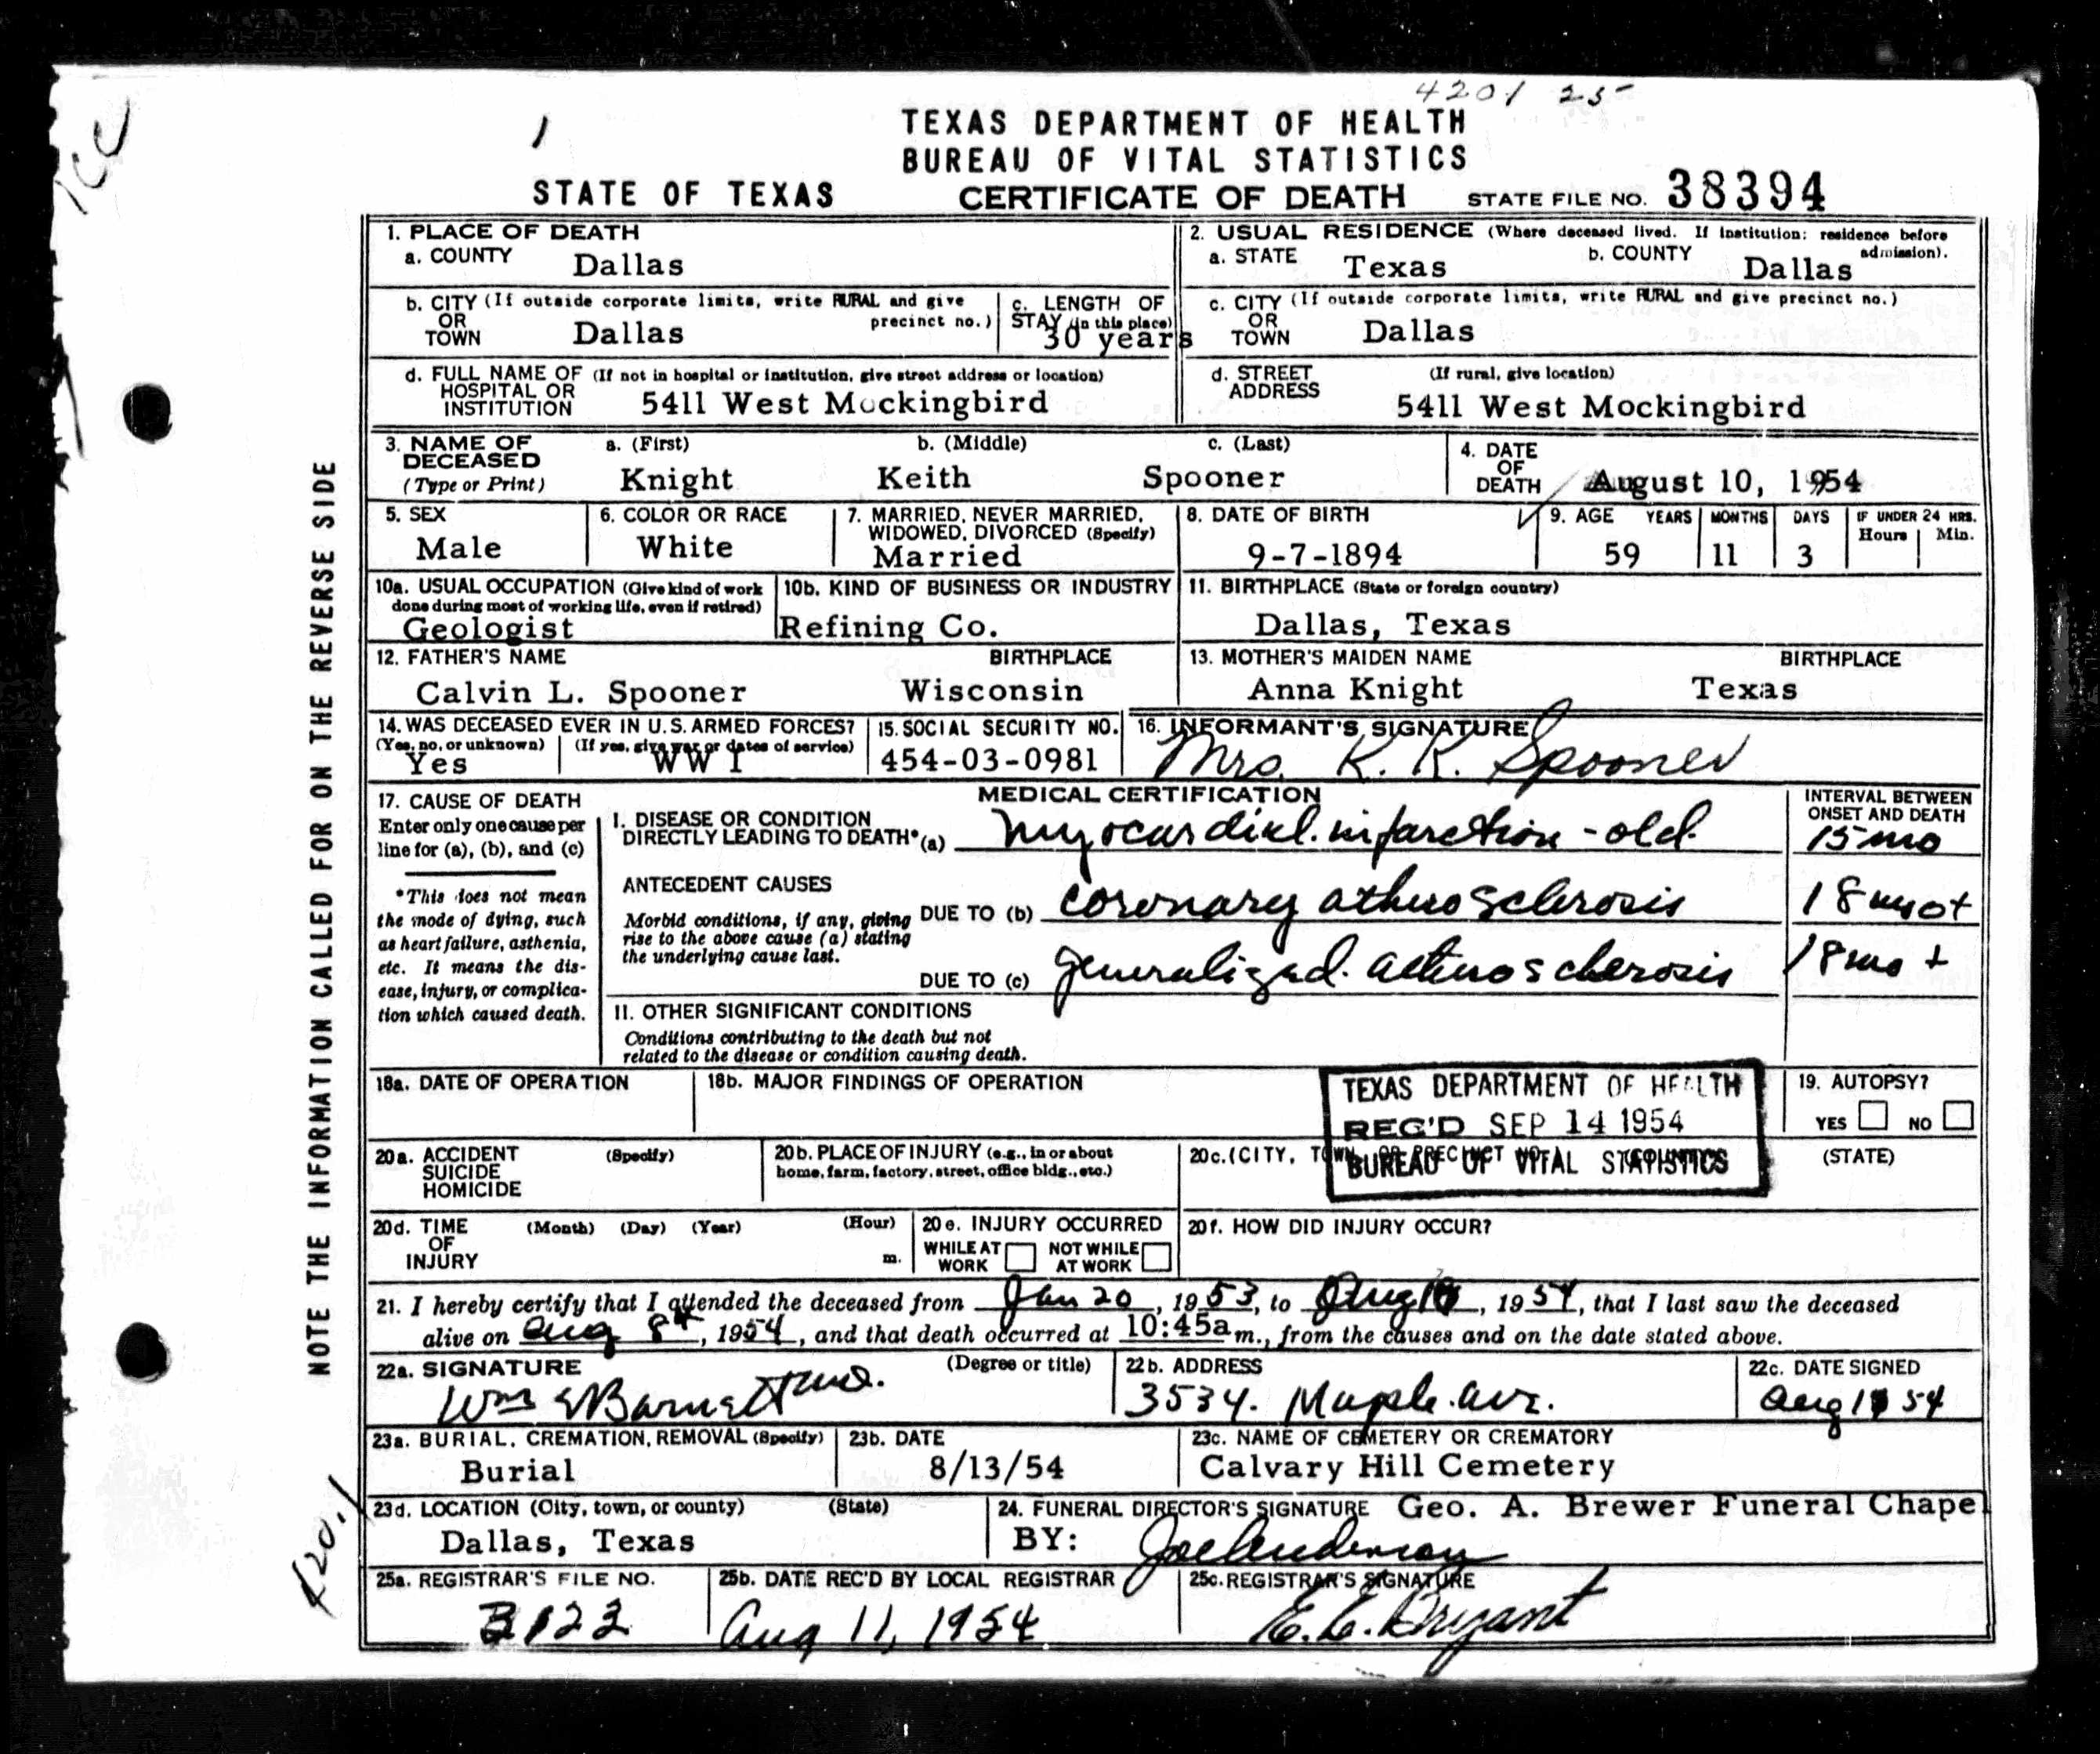 4201 25
TEXAS DEPARTMENT OF HEALTH
BUREAU OF VITAL STATISTICS
STATE OF TEXAS CERTIFICATE OF DEATH STATE FILE NO. 38394
NOTE THE INFORMATION CALLED FOR ON THE REVERSE SIDE
1. PLACE OF DEATH
a. COUNTY Dallas
2. USUAL RESIDENCE (Where deceased lived. If institution: residence before admission).
a. STATE Texas b. COUNTY Dallas
b. CITY (If outside corporate limits, write RURAL and give precinct no.)
OR TOWN Dallas
c. LENGTH OF STAY (in this place) 30 years
c. CITY (If outside corporate limits, write RURAL and give precinct no.)
OR TOWN Dallas
d. FULL NAME OF HOSPITAL OR INSTITUTION (If not in hospital or institution, give street address or location)
5411 West Mockingbird
d. STREET ADDRESS (If rural, give location)
5411 West Mockingbird
3. NAME OF DECEASED (Type or Print) a. (First) b. (Middle) c. (Last)
Knight Keith Spooner
4. DATE OF DEATH August 10, 1954
5. SEX Male
6. COLOR OR RACE White
7. MARRIED, NEVER MARRIED, WIDOWED, DIVORCED (Specify) Married
8. DATE OF BIRTH 9-7-1894
9. AGE YEARS 59 MONTHS 11 DAYS 3 IF UNDER 24 HRS. Hours Min.
10a. USUAL OCCUPATION (Give kind of work done during most of working life, even if retired)
Geologist
10b. KIND OF BUSINESS OR INDUSTRY
Refining Co.
11. BIRTHPLACE (State or foreign country)
Dallas, Texas
12. FATHER'S NAME BIRTHPLACE
Calvin L. Spooner Wisconsin
13. MOTHER'S MAIDEN NAME BIRTHPLACE
Anna Knight Texas
14. WAS DECEASED EVER IN U.S. ARMED FORCES?
(Yes, no, or unknown) (If yes, give war or dates of service)
Yes WW I
15. SOCIAL SECURITY NO.
454-03-0981
16. INFORMANT'S SIGNATURE
Mrs. K. K. Spooner
17. CAUSE OF DEATH
Enter only one cause per line for (a), (b), and (c)
*This does not mean the mode of dying, such as heart failure, asthenia, etc. It means the disease, injury, or complication which caused death.
MEDICAL CERTIFICATION
INTERVAL BETWEEN ONSET AND DEATH
I. DISEASE OR CONDITION DIRECTLY LEADING TO DEATH* (a) myocardial infarction - old. 15 mo
ANTECEDENT CAUSES
Morbid conditions, if any, giving rise to the above cause (a) stating the underlying cause last.
DUE TO (b) coronary atherosclerosis 18 mo +
DUE TO (c) generalized atherosclerosis 18 mo +
II. OTHER SIGNIFICANT CONDITIONS
Conditions contributing to the death but not related to the disease or condition causing death.
18a. DATE OF OPERATION
18b. MAJOR FINDINGS OF OPERATION
19. AUTOPSY?
YES NO
TEXAS DEPARTMENT OF HEALTH
REG'D SEP 14 1954
BUREAU OF VITAL STATISTICS
20a. ACCIDENT SUICIDE HOMICIDE (Specify)
20b. PLACE OF INJURY (e.g., in or about home, farm, factory, street, office bldg., etc.)
20c. (CITY, TOWN, OR PRECINCT NO.) (COUNTY) (STATE)
20d. TIME OF INJURY (Month) (Day) (Year) (Hour) m.
20e. INJURY OCCURRED
WHILE AT WORK NOT WHILE AT WORK
20f. HOW DID INJURY OCCUR?
21. I hereby certify that I attended the deceased from Jan 20, 1953, to Aug 10, 1954, that I last saw the deceased
alive on Aug 8th, 1954, and that death occurred at 10:45a m., from the causes and on the date stated above.
22a. SIGNATURE (Degree or title)
Wm E Barnett MD.
22b. ADDRESS
3534. Maple Ave.
22c. DATE SIGNED
Aug 54
23a. BURIAL, CREMATION, REMOVAL (Specify)
Burial
23b. DATE
8/13/54
23c. NAME OF CEMETERY OR CREMATORY
Calvary Hill Cemetery
23d. LOCATION (City, town, or county) (State)
Dallas, Texas
24. FUNERAL DIRECTOR'S SIGNATURE Geo. A. Brewer Funeral Chapel
BY: Joe Anderson
25a. REGISTRAR'S FILE NO.
3122
25b. DATE REC'D BY LOCAL REGISTRAR
Aug 11, 1954
25c. REGISTRAR'S SIGNATURE
E. E. Bryant
420.1